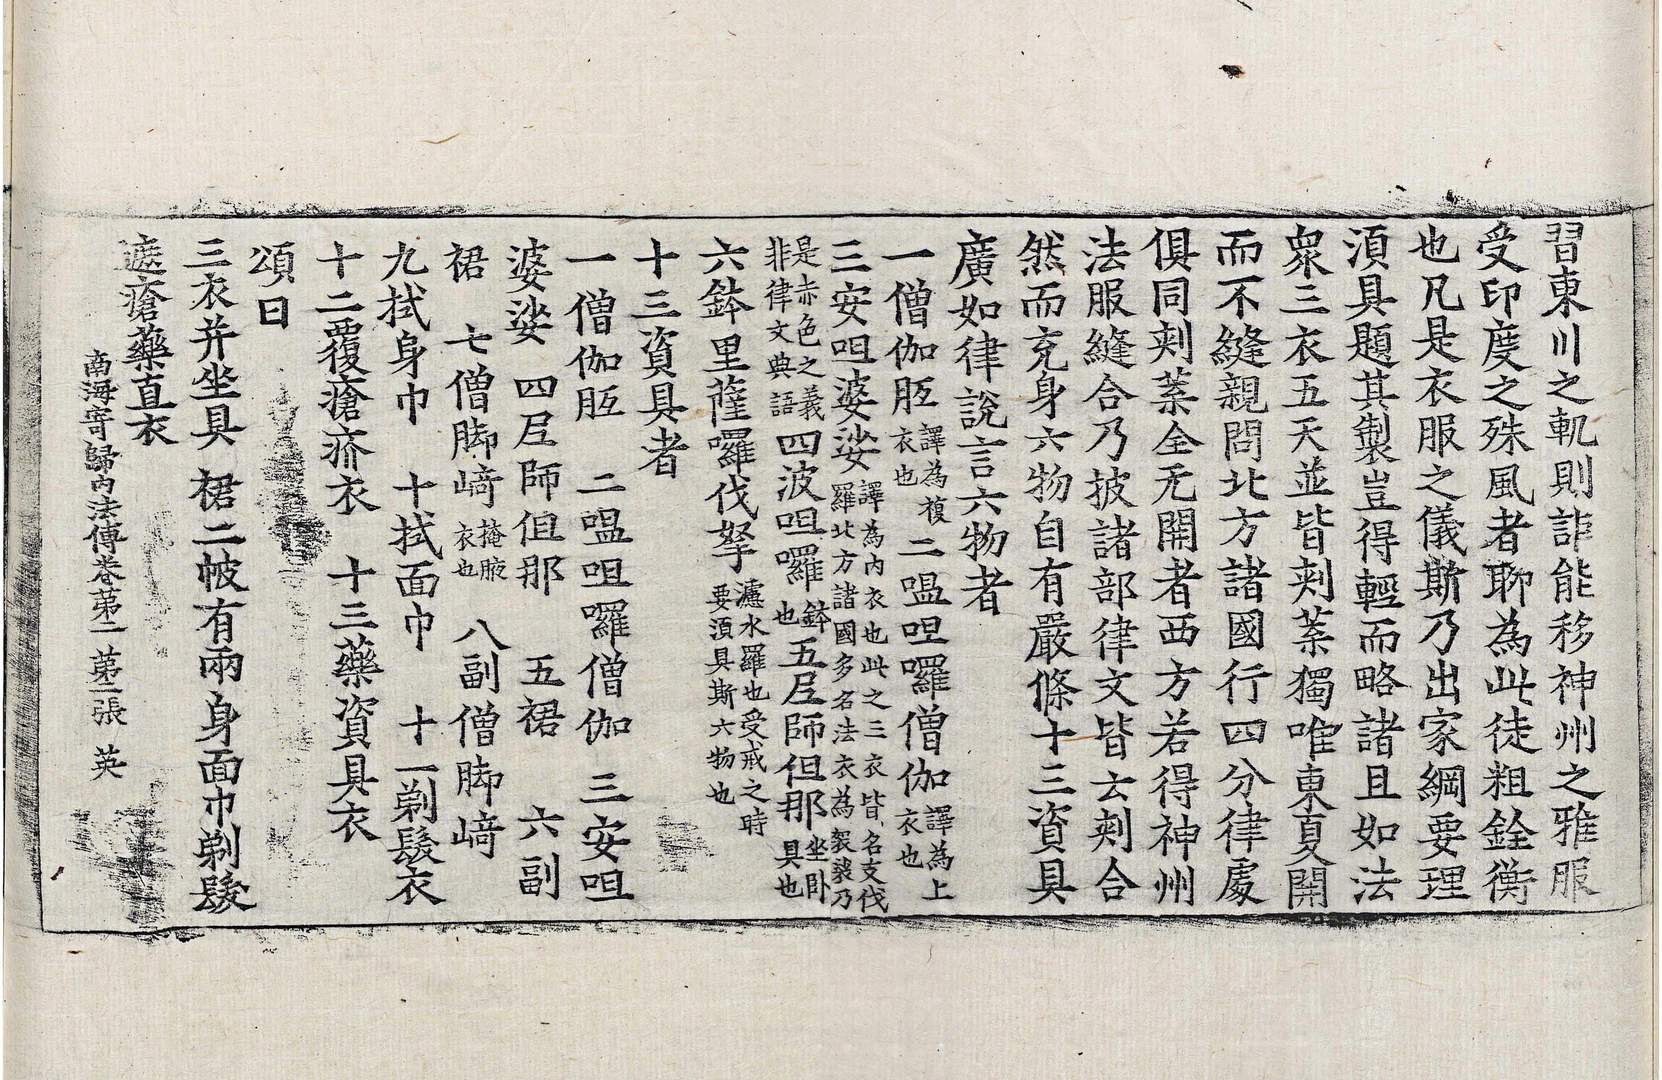 習東川之軌則詎能移神州之雅服
受印度之殊風者聊為此徒粗銓衡
也凡是衣服之儀斯乃出家綱要理
湏具題其製豈得輕而略諸且如法
衆三衣五天並皆刾葉獨唯東夏開
而不縫親問北方諸國行四分律處
俱同刾葉全无開者西方若得神州
法服縫合乃披諸部律文皆云刾合
然而充身六物自有嚴條十三資具
廣如律說言六物者
一僧伽胝譯為複衣也二嗢呾囉僧伽譯為上衣也
三安呾婆娑譯為內衣也此之三衣皆名支伐羅北方諸國多名法衣為袈裟乃
是赤色之義非律文典語四波呾囉鉢也五尼師但那坐卧具也
六鉢里薩囉伐拏濾水羅也受戒之時要湏具斯六物也
十三資具者
一僧伽胝　二嗢呾囉僧伽　三安呾
婆娑　四尼師但那　五裙　六副
裙　七僧脚﨑掩腋衣也　八副僧脚﨑
九拭身巾　十拭面巾　十一剃髮衣
十二覆瘡疥衣　十三藥資具衣
頌曰
三衣并坐具　裙二帔有兩身面巾剃髮
遮瘡藥直衣
南海寄歸內法傳卷第二　第二張　英